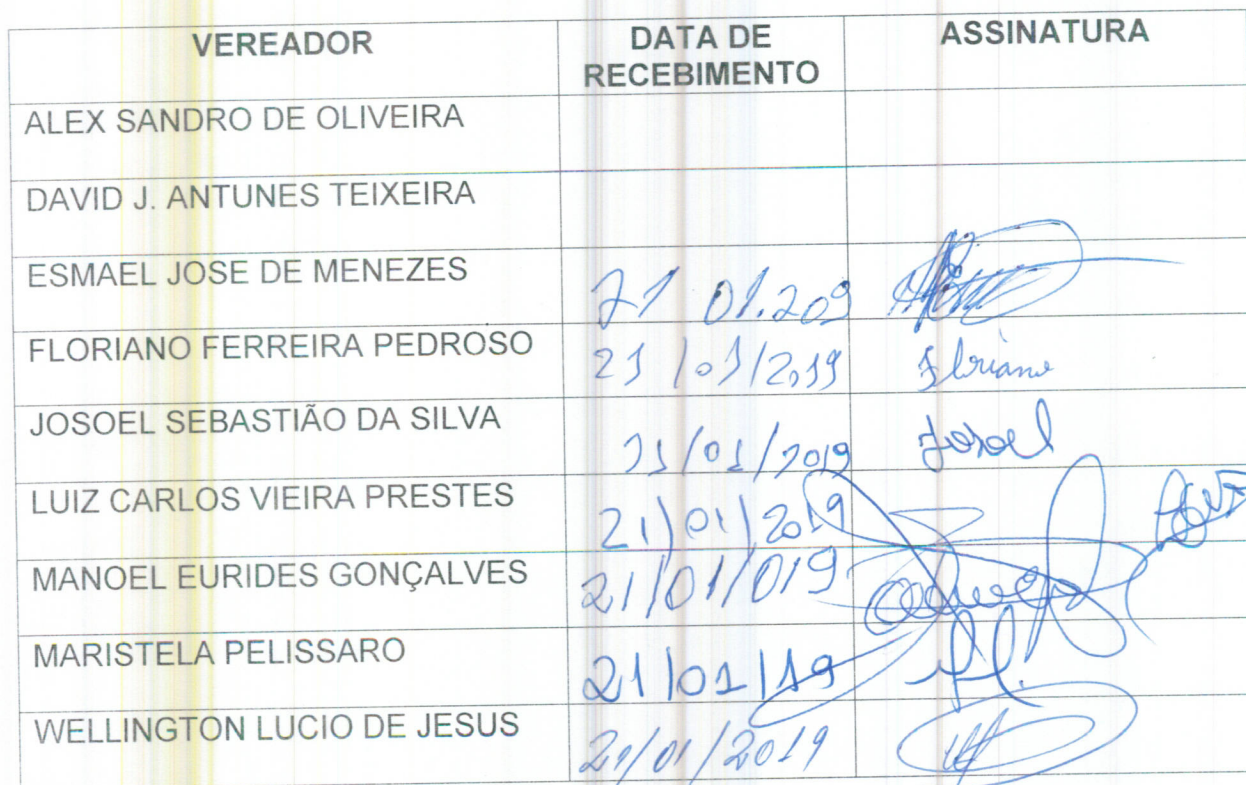 VEREADOR DATA DE RECEBIMENTO ASSINATURA
ALEX SANDRO DE OLIVEIRA
DAVID J. ANTUNES TEIXEIRA
ESMAEL JOSE DE MENEZES 21 01.209
FLORIANO FERREIRA PEDROSO 21/01/2019 Floriano
JOSOEL SEBASTIÃO DA SILVA 21/01/2019 Josoel
LUIZ CARLOS VIEIRA PRESTES 21/01/2019
MANOEL EURIDES GONÇALVES 21/01/019
MARISTELA PELISSARO 21/01/19
WELLINGTON LUCIO DE JESUS 21/01/2019